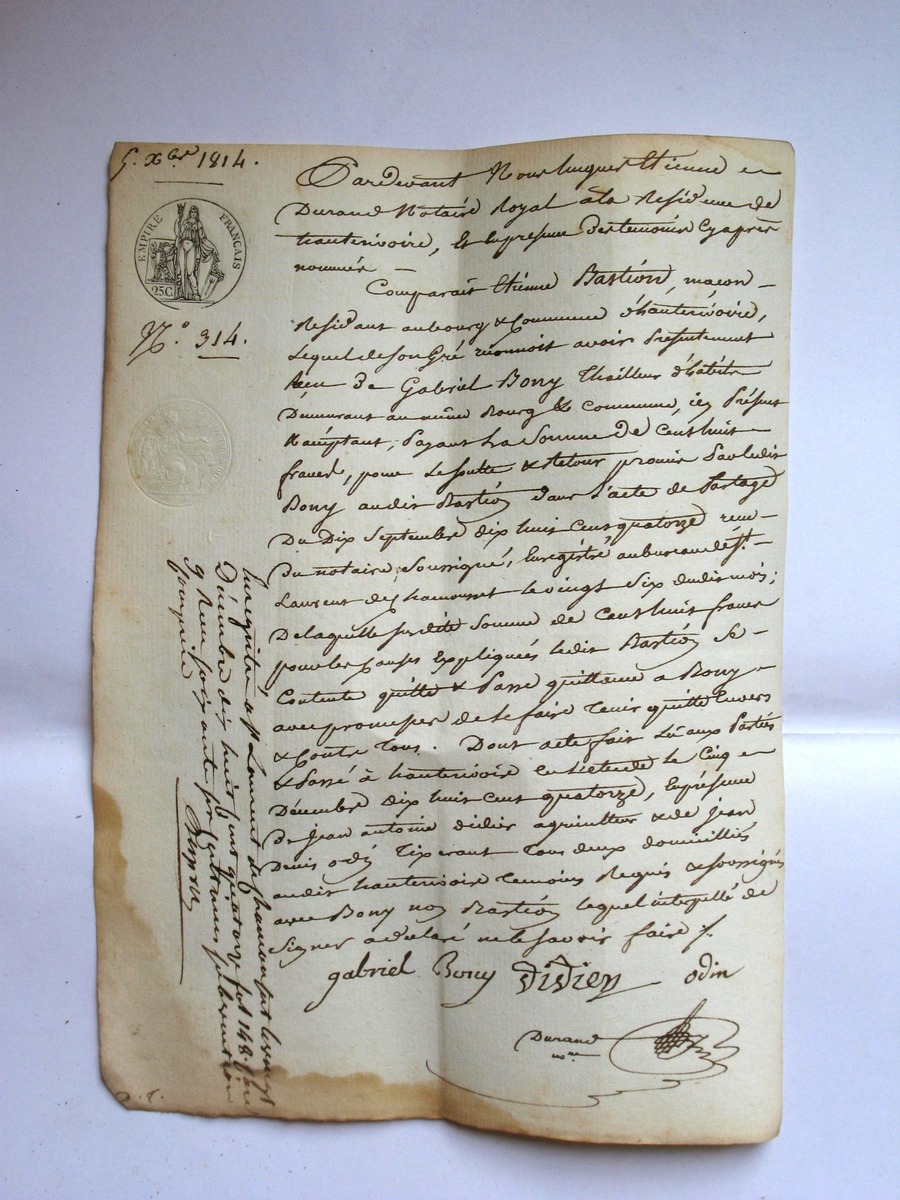 5. Xbre 1814.
EMPIRE FRANÇAIS
25C
N.º 314.
Pardevant Nous hugues Etienne
Durand Notaire Royal à la Residence de
hauterivoire, Et En presence Des temoins Cy après
nommés —
Comparait Etienne Bastion, maçon —
Residant au bourg & Commune d'hauterivoire,
Lequel de Son Gré reconnoit avoir Presentement
Reçu De Gabriel Bony Thailleur d'habits
Demeurant au même Bourg & Commune, icy Présent
Kaceptant, Payant La Somme de Cent huit —
francs, pour La Soutte & Retour promis Par ledit
Bony audit Bastion Dans L'acte de Partage
Du Dix Septembre dix huit Cent quatorze recu —
Du notaire Soussigné, Enregistré au bureau de St. —
Laurent de chamousset le vingt Six dudit mois;
De laquelle susdite Somme de Cent huit francs
pour les Causes Expliquées ledit Bastion Se —
Contente quitte & Passe quittance a Bony —
avec promesse de le faire Tenir quitte Envers
& Contre Tous. Dont acte fait Lû aux Parties
& Passé à hauterivoire En L'etude le Cinq
Décembre dix huit Cent quatorze, En presence
De Jean antoine didier agriculteur & de Jean
Denis odin Tixerant Tous deux domiciliés
audit hauterivoire Temoins Requis & Soussignés
avec Bony non Bastion lequel interpellé de
Signer a declaré ne le Savoir faire /.
gabriel Bony Didier odin
Durand
nre
Enregistré a St Laurent de chamousset le vingt
Décembre dix huit cent quatorze fol 148.
Reçu